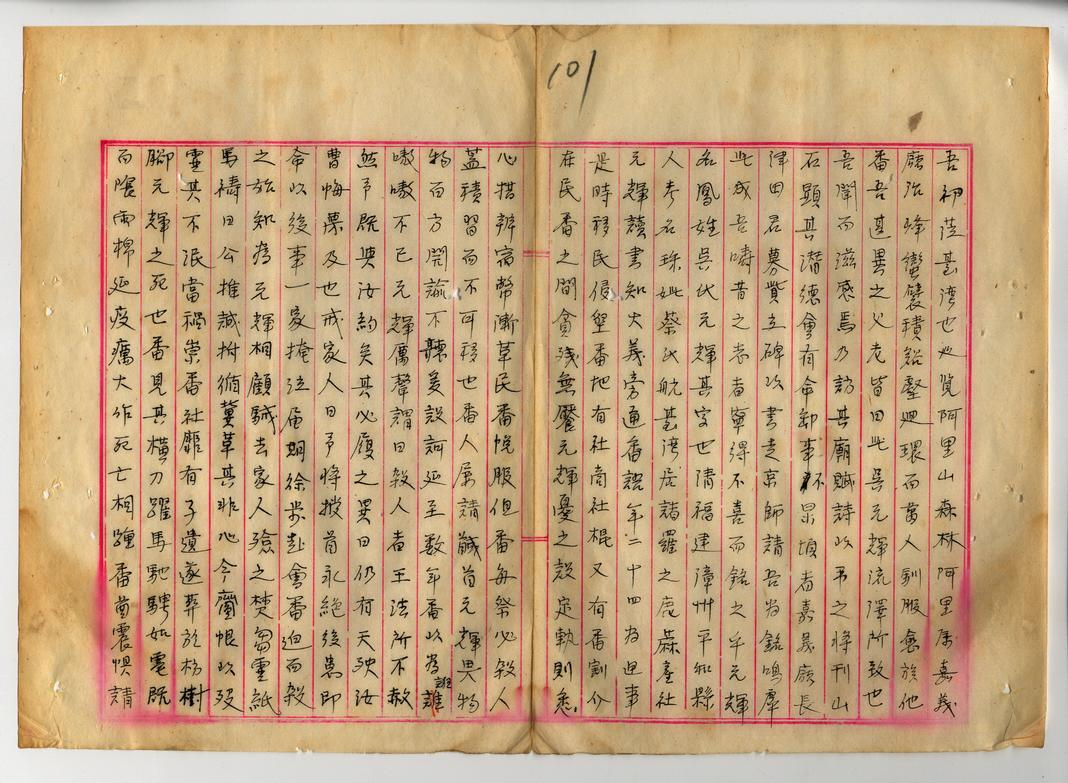 101
吾初蒞甚湾也必览阿里山森林阿里属嘉義
廳治峰巒襞積谿壑迴環而蕃人馴服愈於他
番吾甚異之父老皆曰此吳元輝流澤所致也
吾聞而滋感焉乃訪其廟賦詩以弔之將刊山
石顯其潜德會有命卸事不果頃者嘉義廳長
津田君募貲立碑以書走京師請吾為銘鳴虖
此成吾疇昔之志者寧得不喜而銘之乎元輝
名鳳姓吳氏元輝其字也清福建漳州平和縣
人考名珠妣蔡氏航甚湾居諸羅之鹿蔴產社
元輝讀書知大義旁通番語年二十四為通事
是時移民侵墾番地有社商社棍又有番割介
在民番之間貪残無饜元輝憂之設定執則悉
心措辨宿幣漸革民番悅服但番每祭必殺人
蓋積習而不可移也番人屢請馘首元輝畀物
物而方開諭不辣爰設詞延至数年番以為誑
嗷嗷不已元輝厲聲謂曰殺人者王法所不赦
然予既與汝約矣其必履之異日仍有天殃汝
曹悔栗及也戒家人曰予將授首永絕後患即
命以後事一家掩泣届期徐步赴會番迫而殺
之於知為元輝相顧駭去家人殮之焚芻靈紙
馬禱曰公推誠拊循冀革其非心今齎恨以歿
靈其不泯當禍崇番社靡有孑遺遂葬於枋樹
腳元輝之死也番見其橫刀躍馬馳騁如電既
而陰雨棉延疫癘大作死亡相踵番酋震惧請